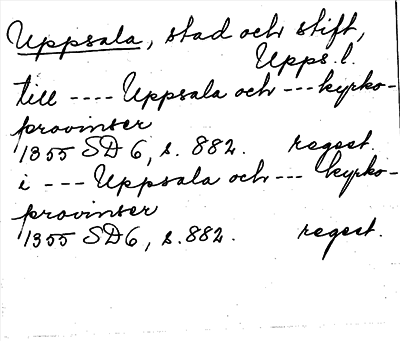 Uppsala, stad och stift,
Upps.l.
till ---- Uppsala och --- kyrko-
provinser
1355 SD 6, s. 882. regest.
i --- Uppsala och --- kyrko-
provinser
1355 SD 6, s. 882. regest.